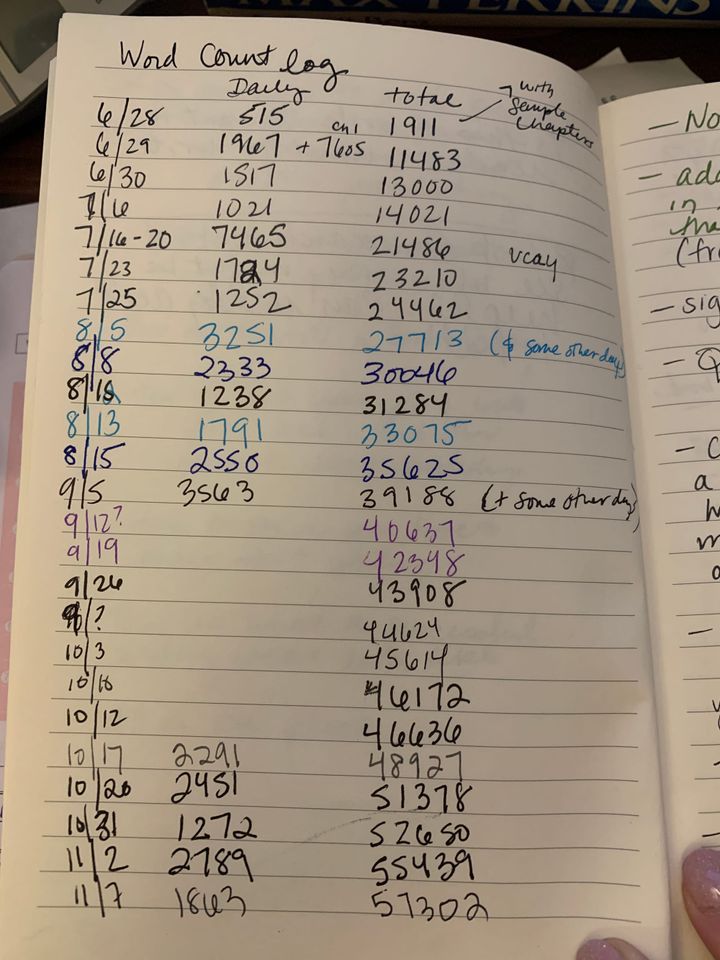 MAX PERKINS
Word Count log
Daily total → with Sample Chapters
6/28 515 1911
6/29 1967 + 7605 ch1 11483
6/30 1517 13000
7/6 1021 14021
7/16-20 7465 21486 vcay
7/23 1724 23210
7/25 1252 24462
8/5 3251 27713 (& some other day)
8/8 2333 30046
8/12 1238 31284
8/13 1791 33075
8/15 2550 35625
9/5 3563 39188 (+ some other day)
9/12? 40637
9/19 42398
9/26 43908
9/? 44624
10/3 45614
10/10 46172
10/12 46636
10/17 2291 48927
10/20 2451 51378
10/31 1272 52650
11/2 2789 55439
11/7 1863 57302
- No
- add
in
tha
(fro
- sig
- C
a